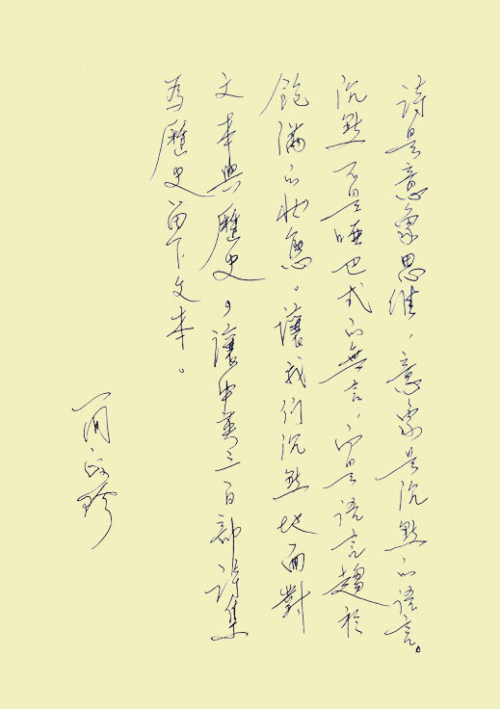 詩是意象思維，意象是沉默的語言。
沉默不是啞巴式的無言，而是語言趨於
飽滿的狀態。讓我们沉默地面對
文本與歷史，讓中英三百部詩集
為歷史留下文本。
简政珍